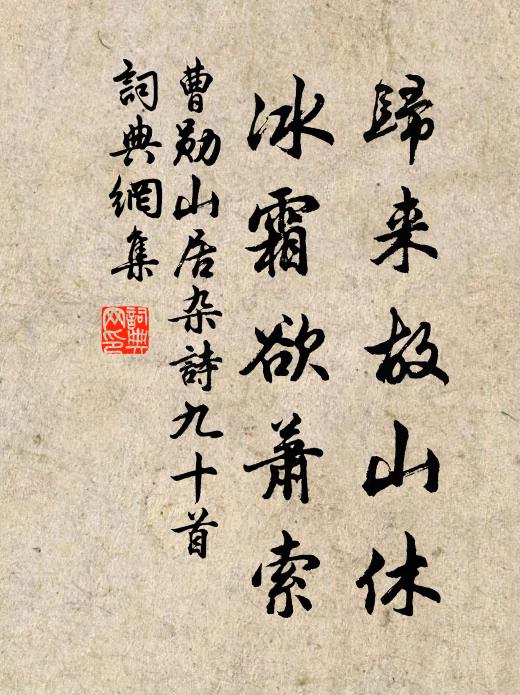 歸来故山休
冰霜欲蕭索
曹勛山居杂詩九十首
詞典網集
詞典网印